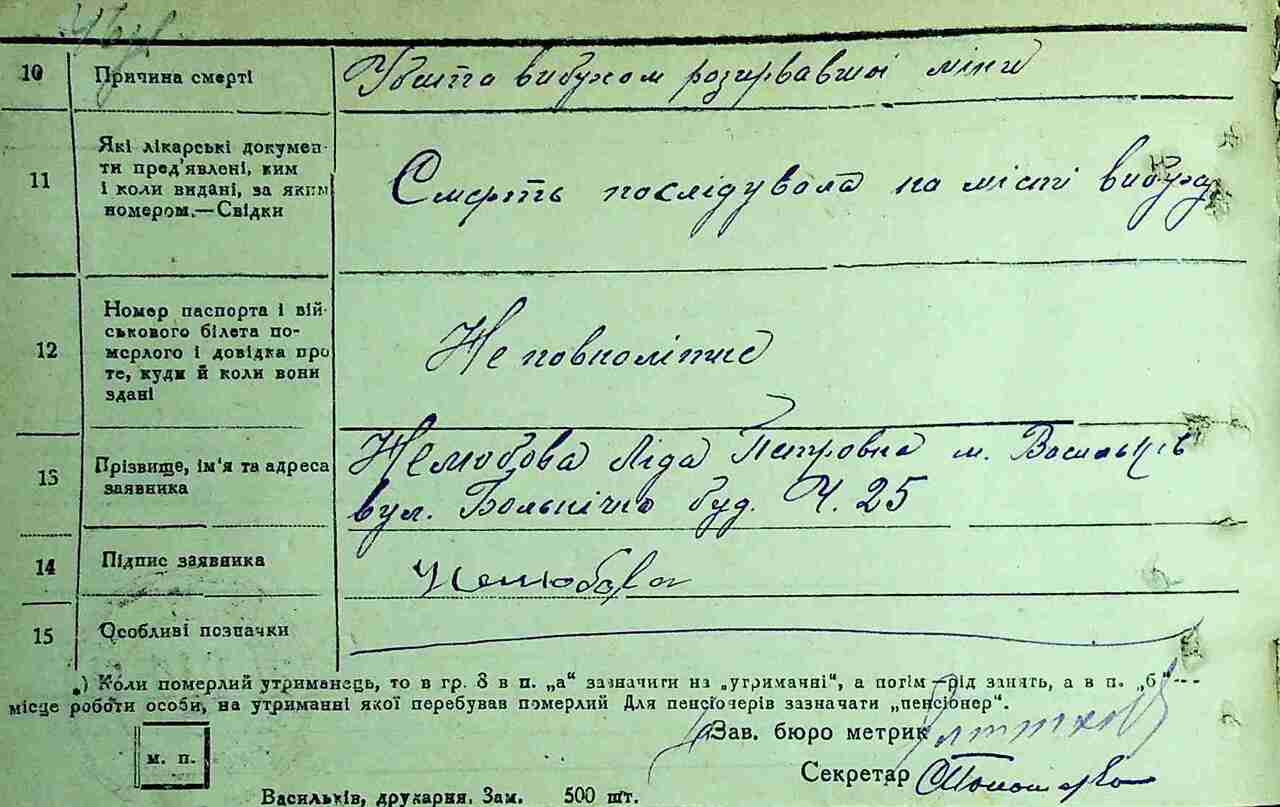 10 Причина смерті Убита вибухом розирвавшої міни
Які лікарські докумен-
ти пред'явлені, ким
11 і коли видані, за яким Смерть послідувала на місті вибуху
номером.—Свідки
Номер паспорта і вій-
ськового білета по-
12 мерлого і довідка про Не повнолітнє
те, куди й коли вони
здані
Нелюбова Ліда Петровна м. Васильків
13 Прізвище, ім'я та адреса
заявника вул. Больнічна буд. Ч. 25
14 Підпис заявника Нелюбова
15 Особливі позначки
*) Коли померлий утриманець, то в гр. 8 в п. „а“ зазначити на „утриманні“, а потім—рід занять, а в п. „б“—
місце роботи особи, на утриманні якої перебував померлий Для пенсіонерів зазначати „пенсіонер“.
Зав. бюро метрик
м. п.
Секретар
Васильків, друкарня. Зам. 500 шт.